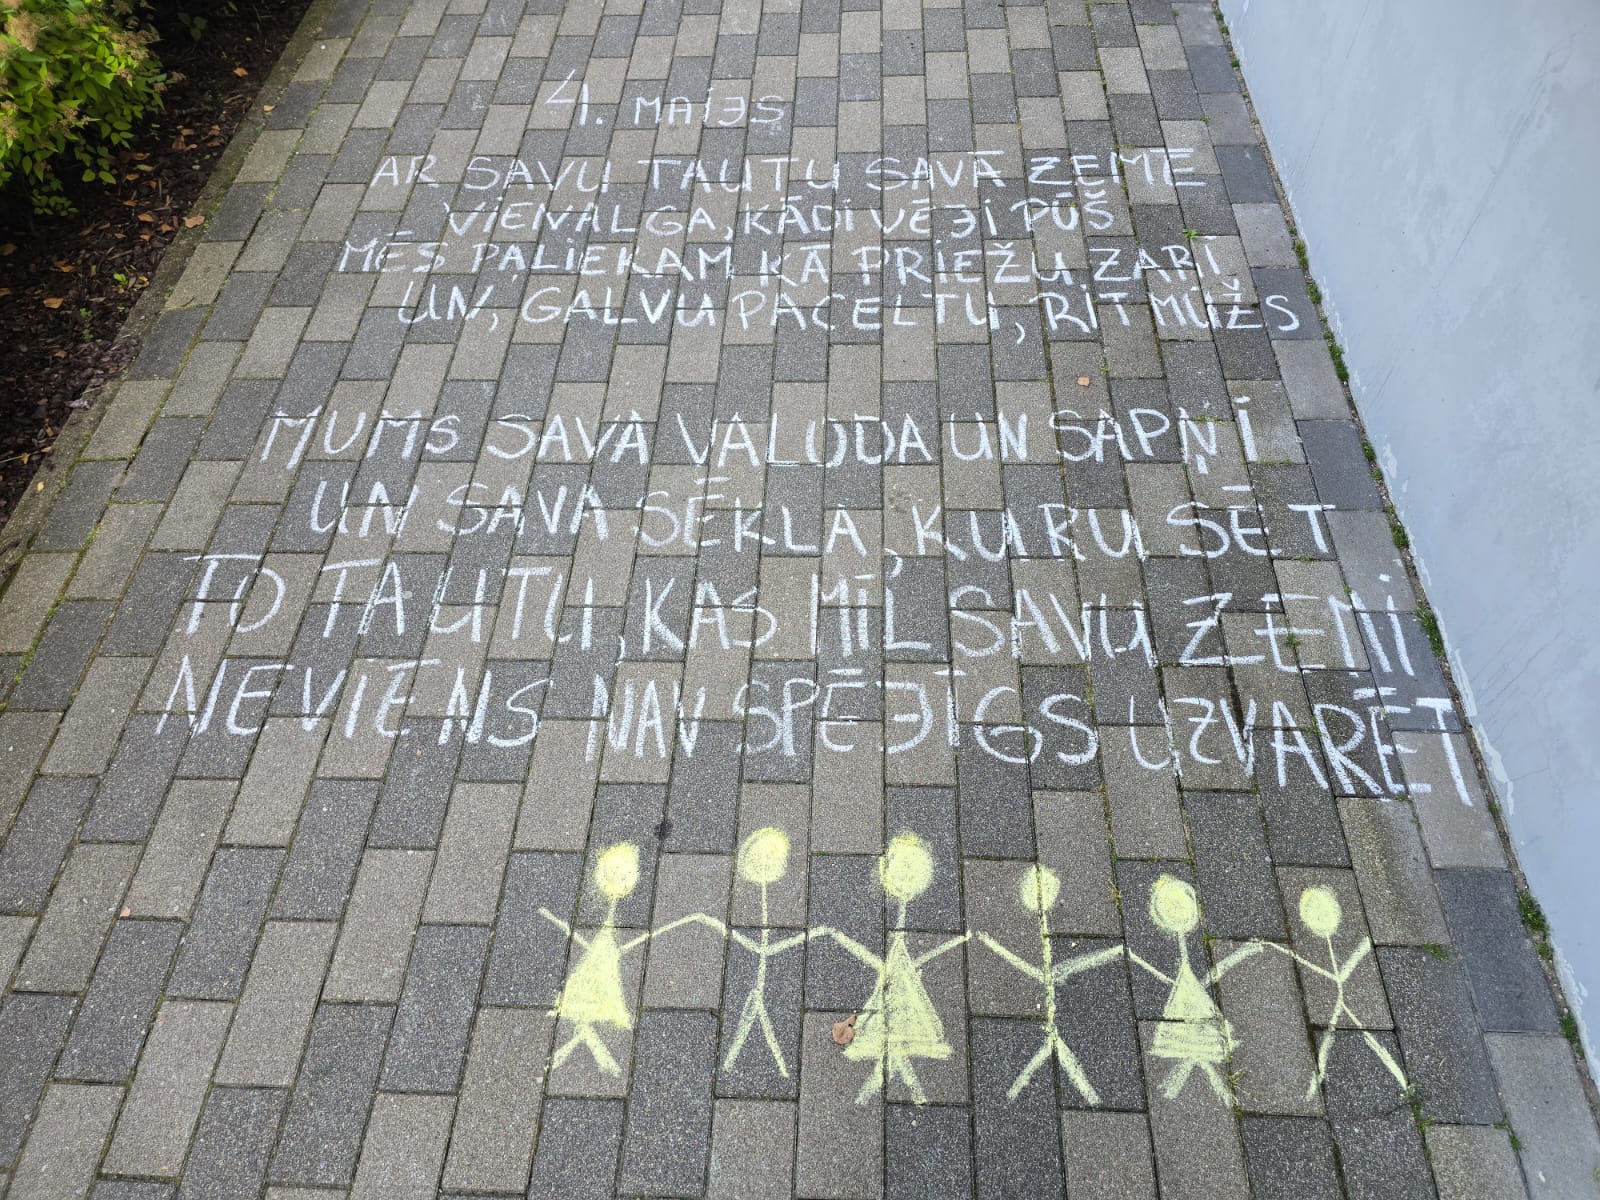 4. MAIJS
AR SAVU TAUTU SAVĀ ZEMĒ
VIENALGA, KĀDI VĒJI PŪŠ
MĒS PALIEKAM KĀ PRIEŽU ZARI
UN, GALVU PACELTU, RIT MŪŽS
MUMS SAVA VALODA UN SAPŅI
UN SAVA SĒKLA, KURU SĒT
TO TAUTU, KAS MĪL SAVU ZEMI
NEVIENS NAV SPĒJĪGS UZVARĒT